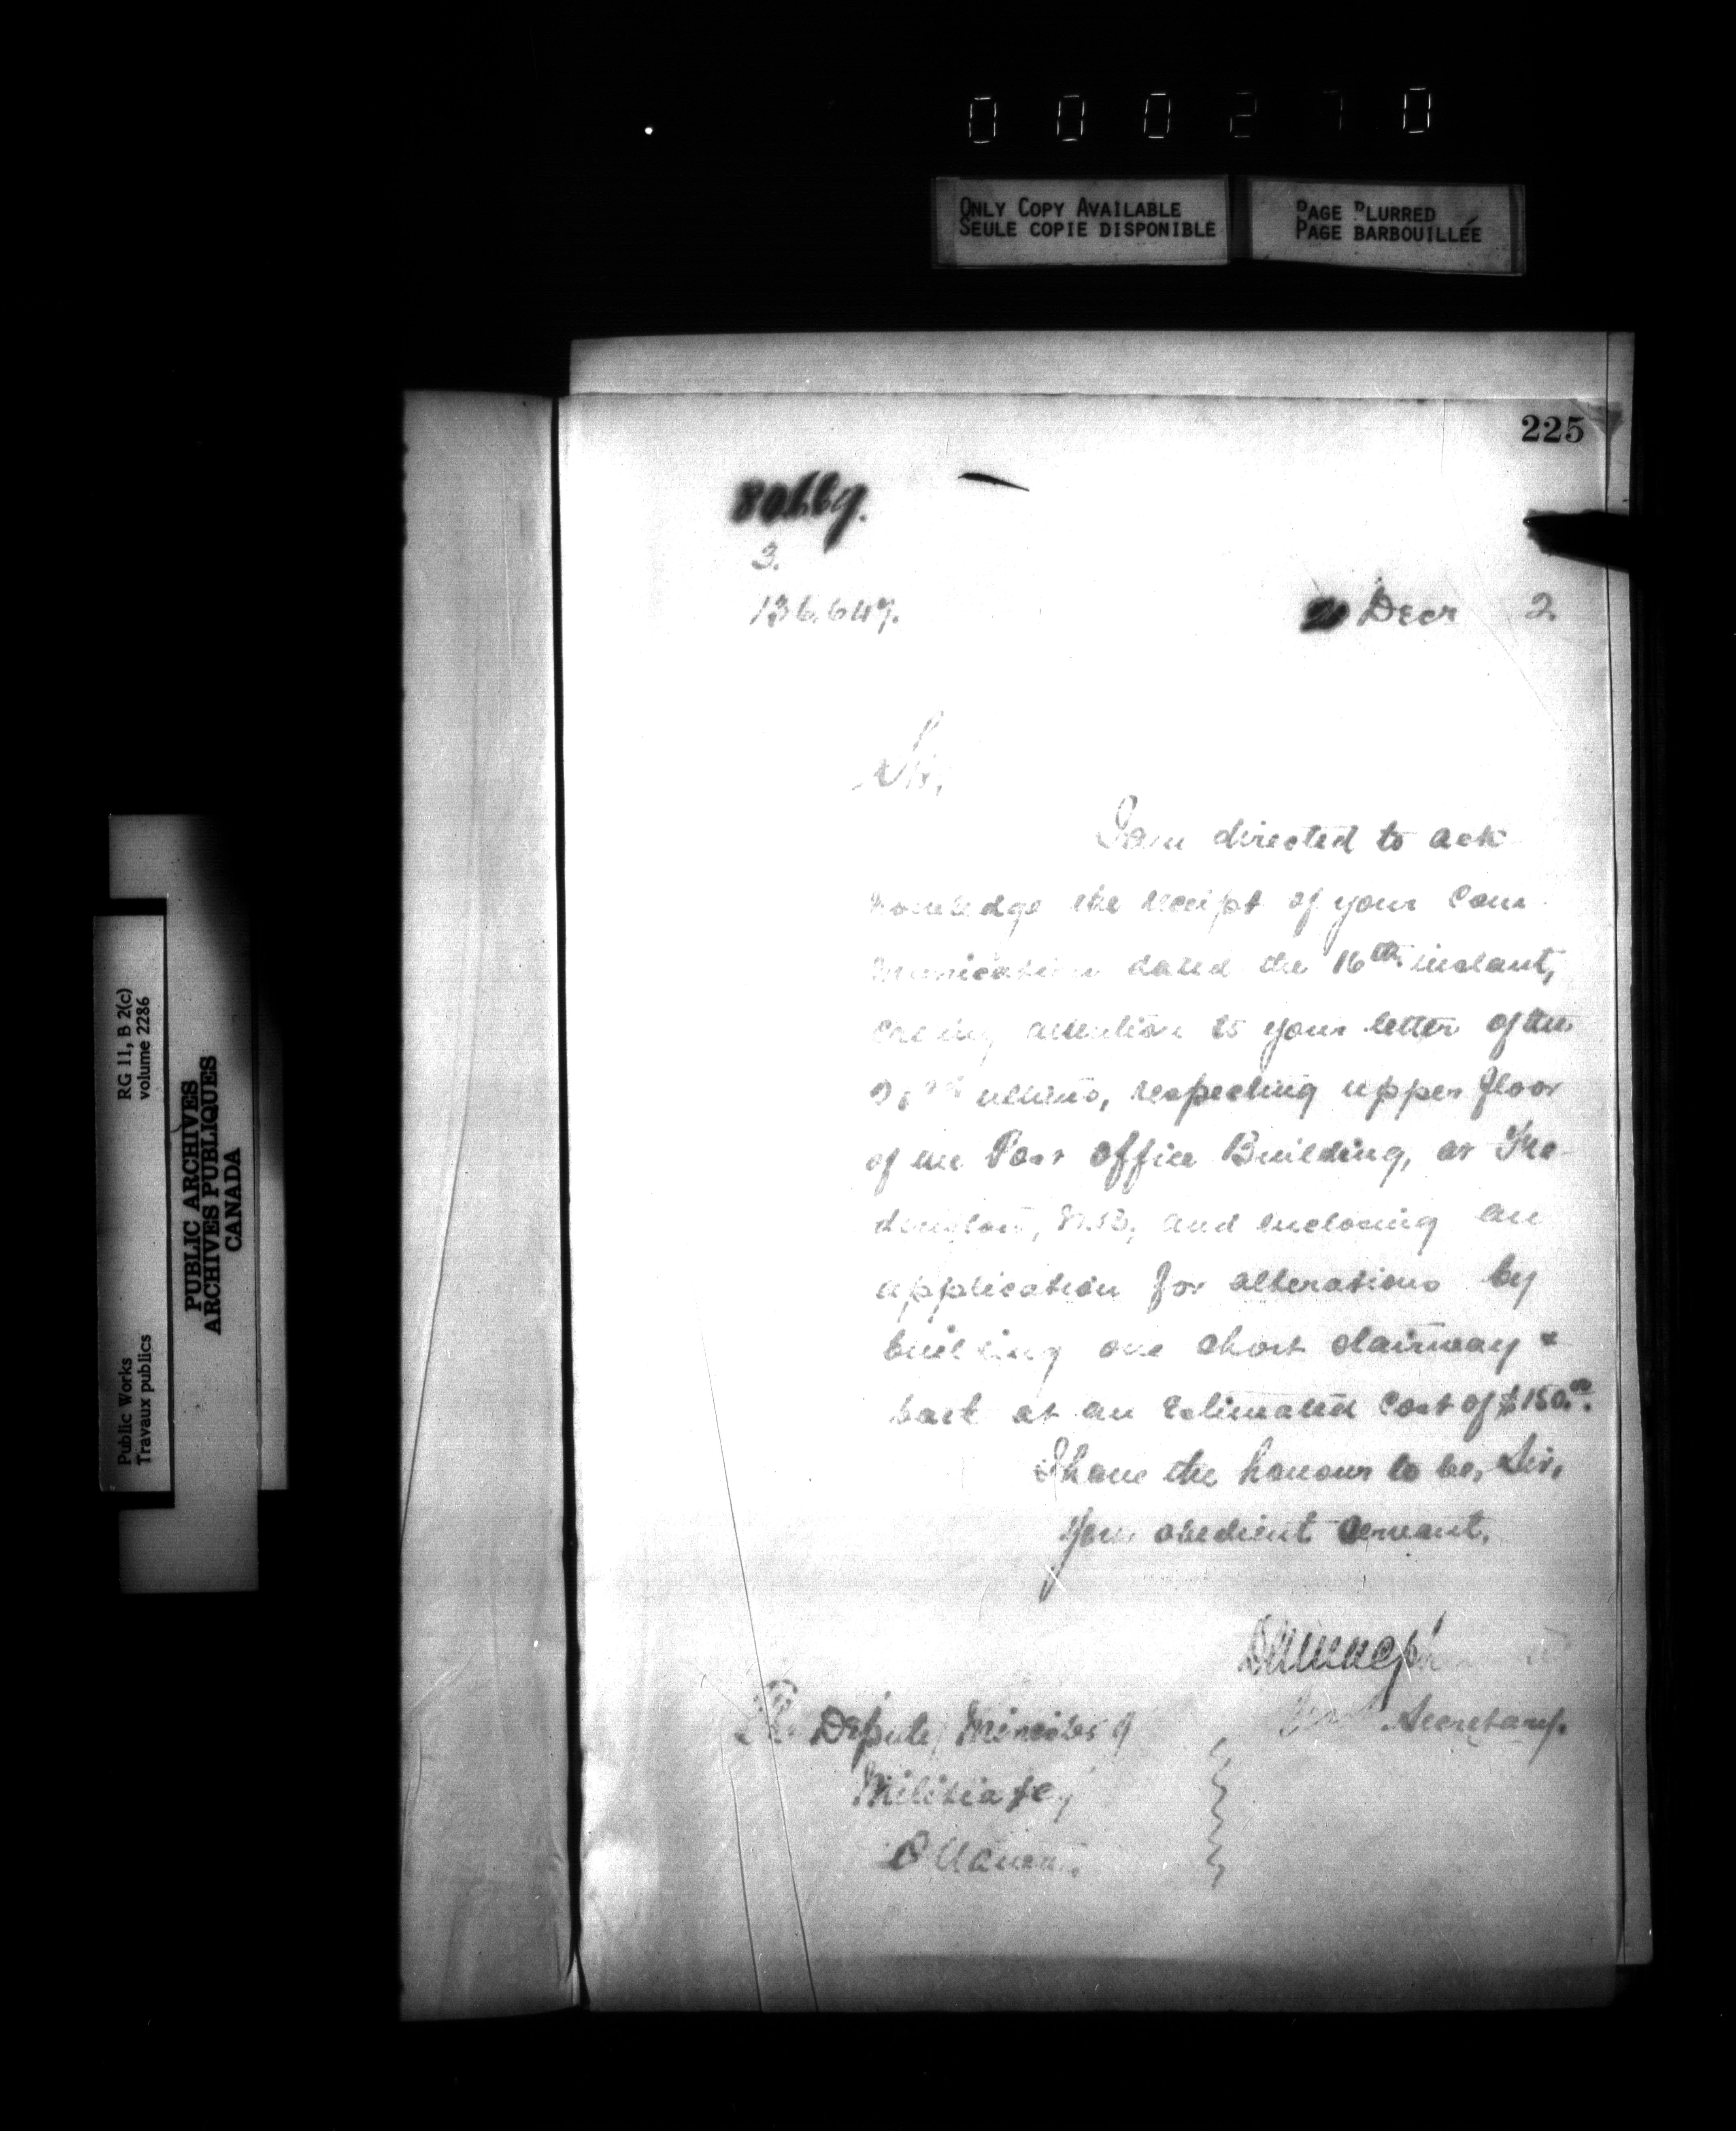 000270
ONLY COPY AVAILABLE
SEULE COPIE DISPONIBLE
PAGE BLURRED
PAGE BARBOUILLÉE
225
3.
136.647.
20 Decr 2.
Sir,
I am directed to ack-
nowledge the receipt of your Com-
munication dated the 16th. instant,
attention to your letter of the
ultimo, respecting upper floor
of the Post Office Building, at Fre-
dericton, N.B., and enclosing an
application for alterations by
building one short stairway &
at an Estimated Cost of $150.00.
I have the honour to be, Sir,
Your obedient servant,
Secretary.
The Deputy Minister of
Militia &c;
Ottawa.
RG 11, B 2(c)
volume 2286
Public Works
Travaux publics
PUBLIC ARCHIVES
ARCHIVES PUBLIQUES
CANADA